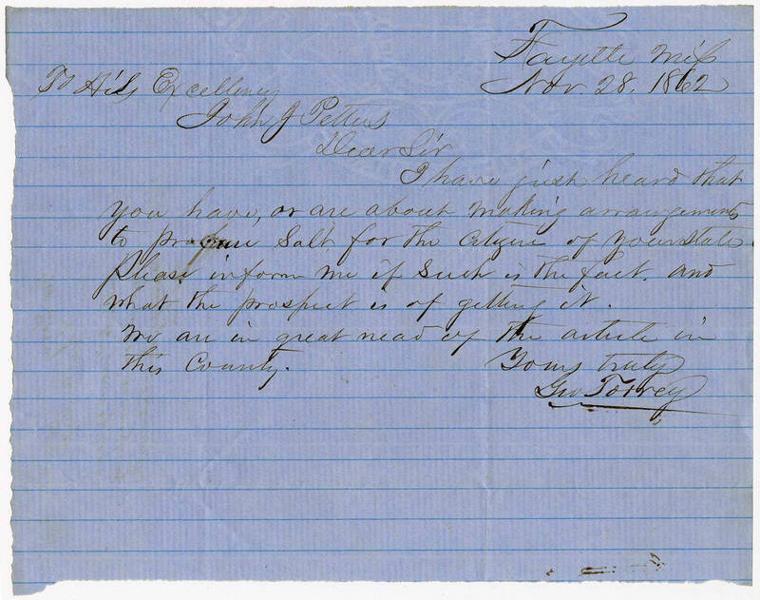 Fayette Miss
Nov 28. 1862
To His Excellency
John J Pettus
Dear Sir
I have just heard that
you have, or are about making arrangements
to procure Salt for the Citizens of your State.
Please inform me if Such is the fact. and
what the prospect is of getting it.
We are in great nead of the article in
this County.
Yours truly
Geo Torrey